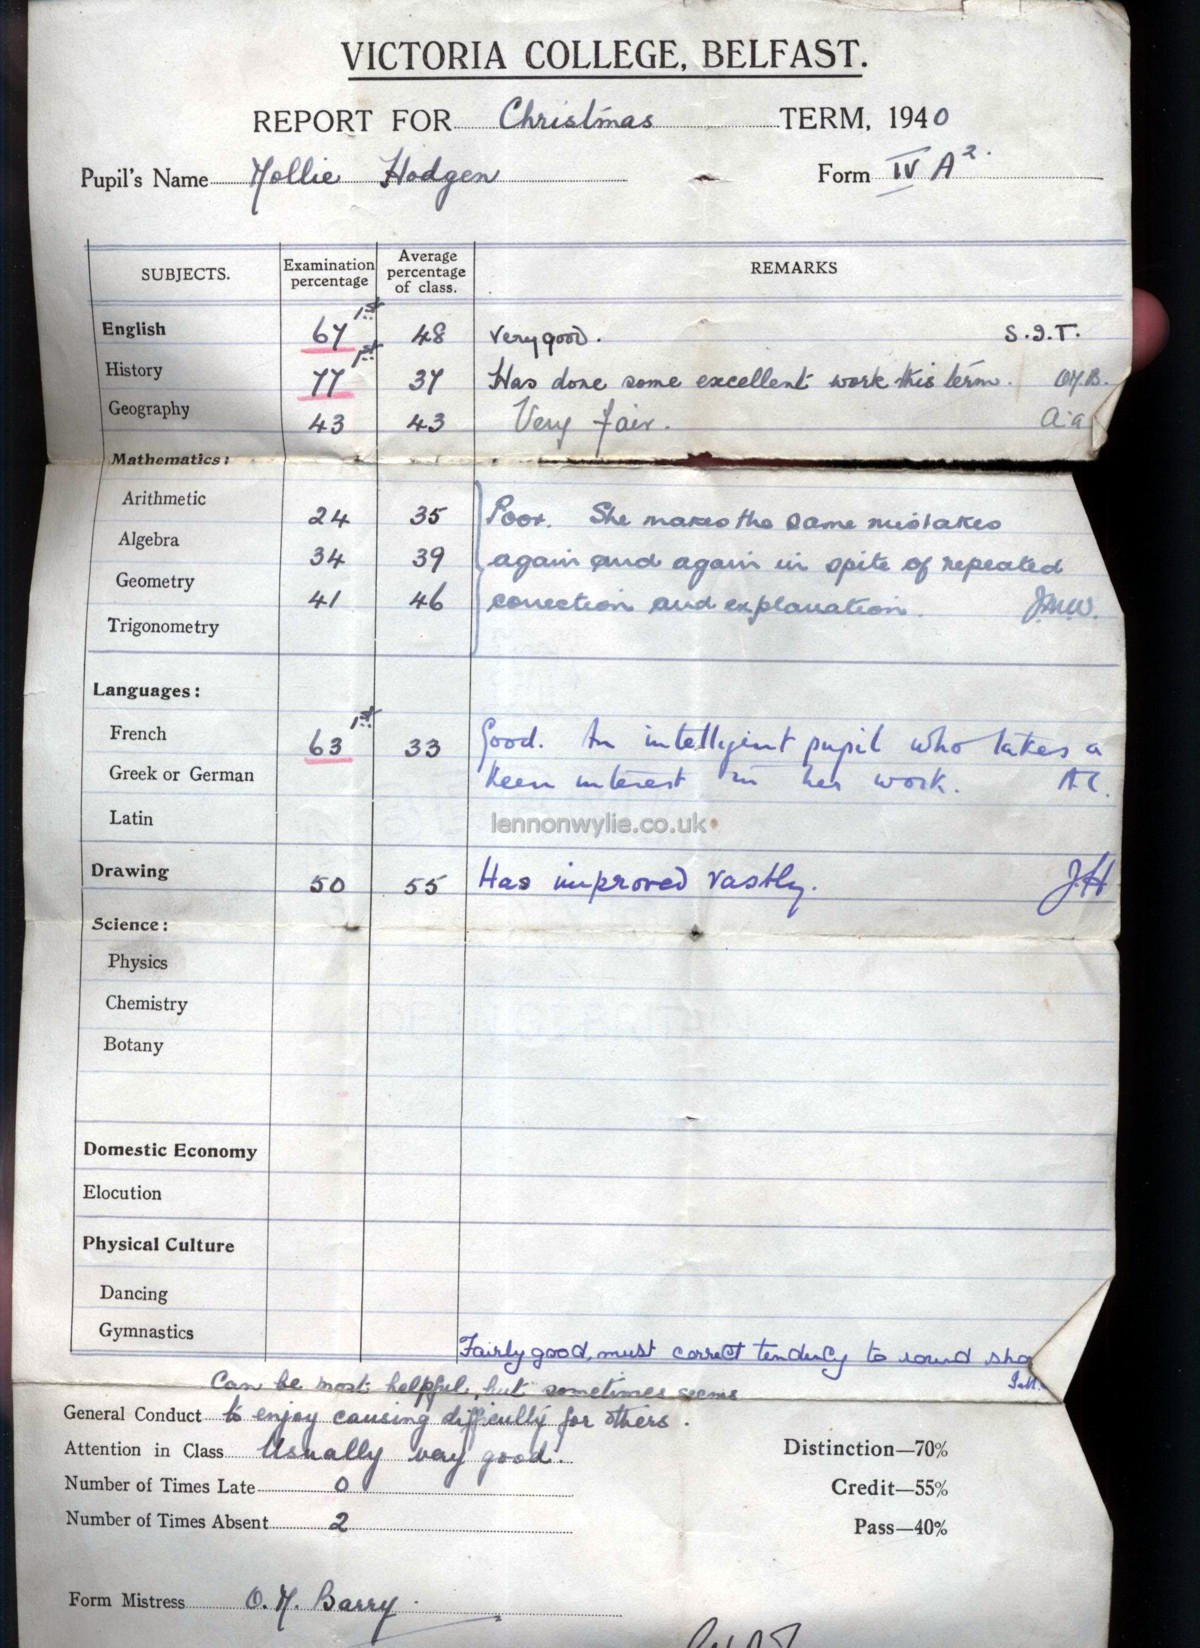 VICTORIA COLLEGE, BELFAST.
REPORT FOR Christmas TERM, 1940
Pupil's Name Mollie Hodgen Form IV A2.
SUBJECTS. Examination percentage Average percentage of class. REMARKS
English 67 1st 48 Very good. S.I.T.
History 77 1st 37 Has done some excellent work this term. O.M.B.
Geography 43 43 Very fair. A.G
Mathematics:
Arithmetic 24 35 Poor. She makes the same mistakes
Algebra 34 39 again and again in spite of repeated
Geometry 41 46 correction and explanation. J.M.W.
Trigonometry
Languages:
French 63 1st 33 Good. An intelligent pupil who takes a
Greek or German keen interest in her work. A.C.
Latin
lennonwylie.co.uk
Drawing 50 55 Has improved vastly. J.H
Science:
Physics
Chemistry
Botany
Domestic Economy
Elocution
Physical Culture
Dancing
Gymnastics Fairly good, must correct tendency to round sho
Can be most helpful, but sometimes seems
General Conduct to enjoy causing difficulty for others.
Attention in Class Usually very good. Distinction—70%
Number of Times Late 0 Credit—55%
Number of Times Absent 2 Pass—40%
Form Mistress O. M. Barry.